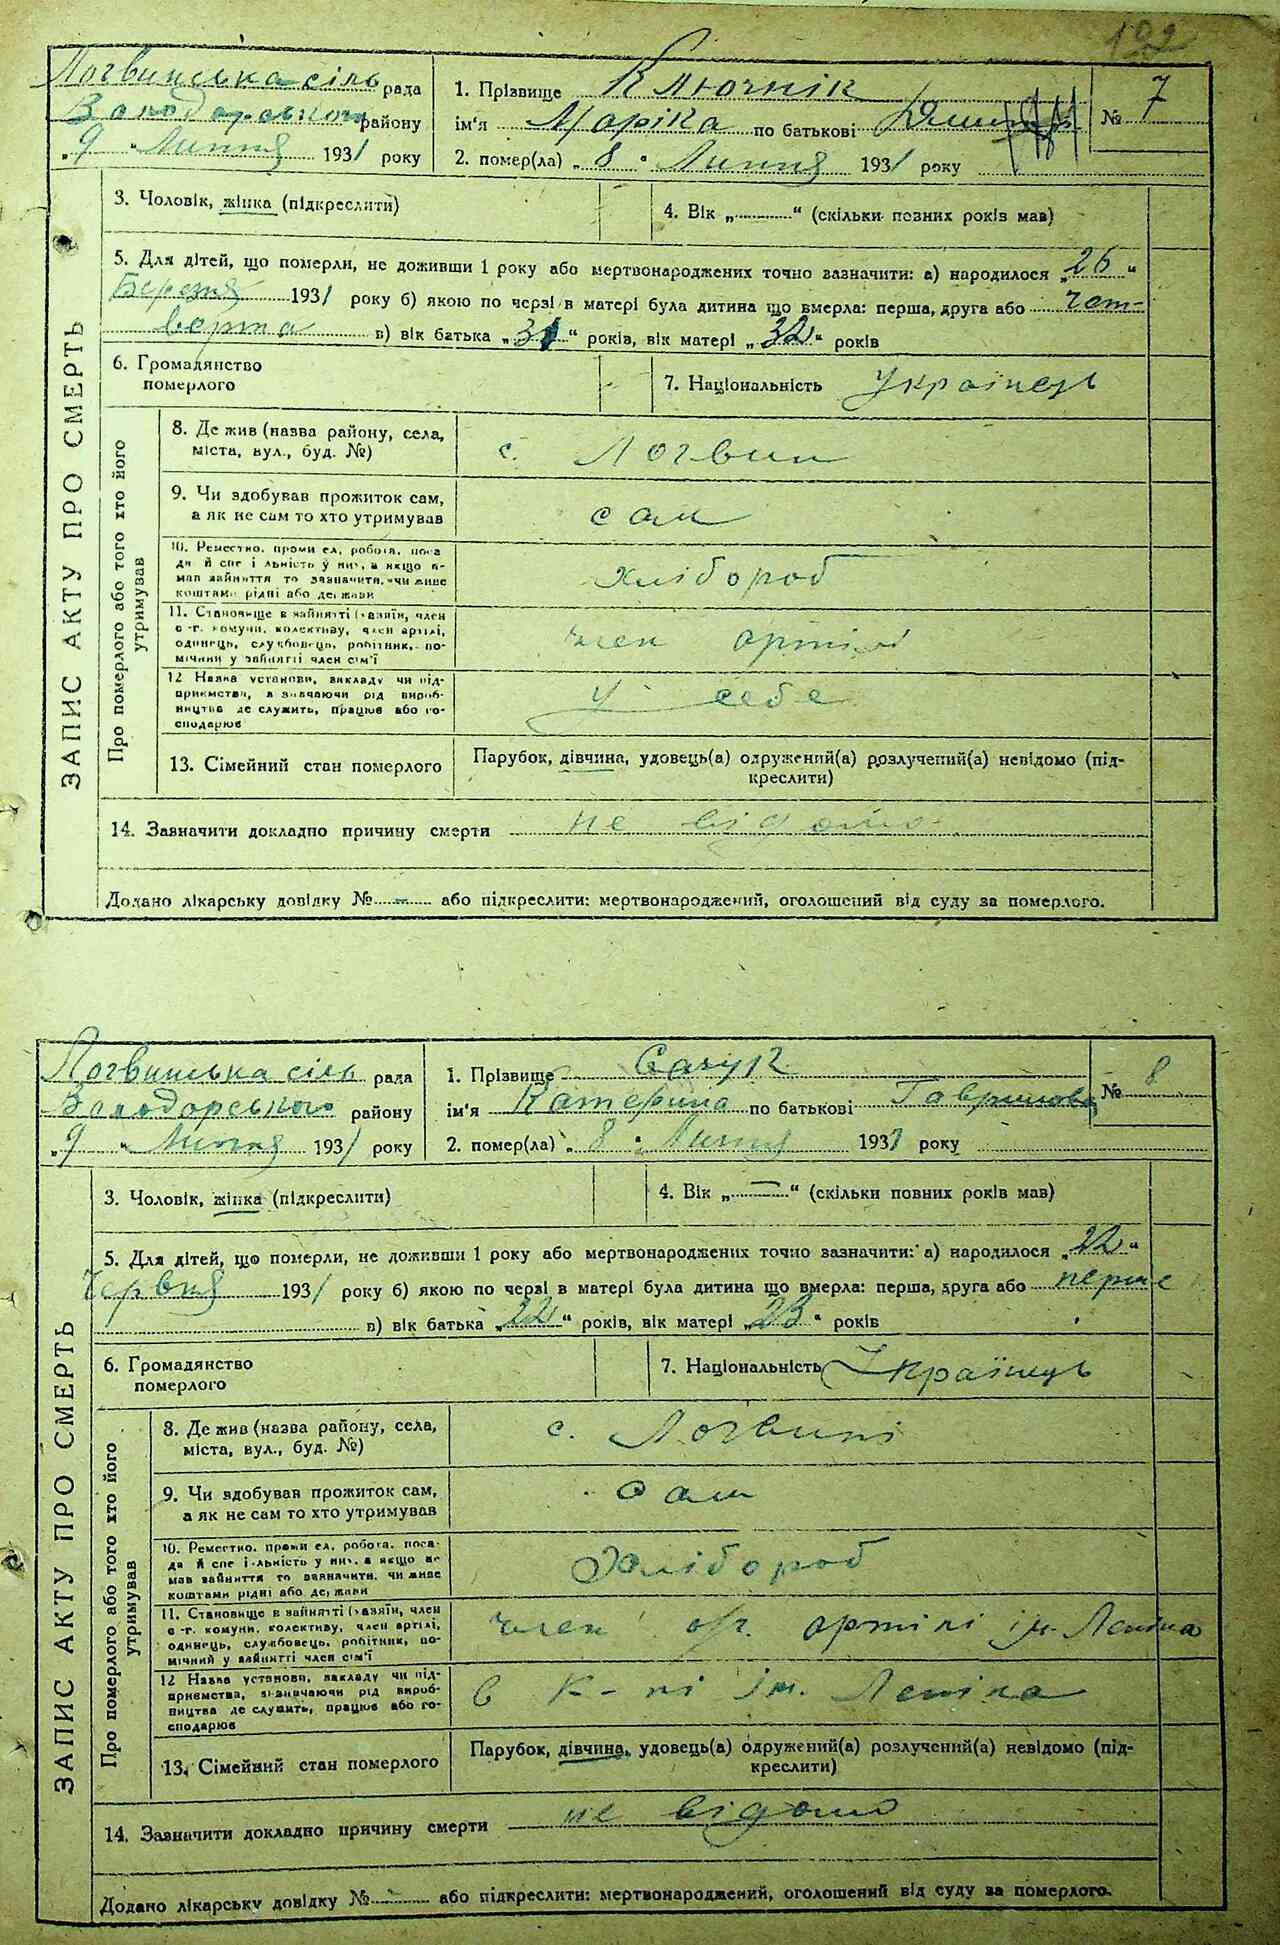 102
Логвинська сіль рада
Володарського району
„9“ Липня 1931 року
1. Прізвище Ключнік
ім'я Маріка по батькові
№ 7
2. помер(ла) „8“ Липня 1931 року
3. Чоловік, жінка (підкреслити)
4. Вік „ “ (скільки повних років мав)
5. Для дітей, що померли, не доживши 1 року або мертвонароджених точно зазначити: а) народилося „26“
Березня 1931 року б) якою по черзі в матері була дитина що вмерла: перша, друга або чет-
верта в) вік батька „31“ років, вік матері „32“ років
6. Громадянство
померлого
7. Національність Українець
ЗАПИС АКТУ ПРО СМЕРТЬ
Про померлого або того хто його
утримував
8. Де жив (назва району, села,
міста, вул., буд. №)
с. Логвин
9. Чи здобував прожиток сам,
а як не сам то хто утримував
сам
10. Реместно, промисел, робота, поса-
да й спеціяльність у них, а якщо не
мав зайняття то зазначити, чи живе
коштами рідні або держави
хлібороб
11. Становище в зайнятті (хазяїн, член
с.-г. комуни, колективу, член артілі,
одинець, службовець, робітник, по-
мічний у зайнятті член сім'ї
член артілі
12 Назва установи, закладу чи під-
приємства, зазначаючи рід вироб-
ництва де служить, працює або го-
сподарює
у себе
13. Сімейний стан померлого
Парубок, дівчина, удовець(а) одружений(а) розлучений(а) невідомо (під-
креслити)
14. Зазначити докладно причину смерти не відомо
Додано лікарську довідку №  –  або підкреслити: мертвонароджений, оголошений від суду за померлого.
Логвинська сіль рада
Володарського району
„9“ Липня 1931 року
1. Прізвище Сачук
ім'я Катерина по батькові Гаврилова
№ 8
2. помер(ла) „8“ Липня 1931 року
3. Чоловік, жінка (підкреслити)
4. Вік „—“ (скільки повних років мав)
5. Для дітей, що померли, не доживши 1 року або мертвонароджених точно зазначити: а) народилося „22“
Червня 1931 року б) якою по черзі в матері була дитина що вмерла: перша, друга або перше
в) вік батька „22“ років, вік матері „23“ років
6. Громадянство
померлого
7. Національність Українець
ЗАПИС АКТУ ПРО СМЕРТЬ
Про померлого або того хто його
утримував
8. Де жив (назва району, села,
міста, вул., буд. №)
с. Логвині
9. Чи здобував прожиток сам,
а як не сам то хто утримував
сам
10. Реместно, промисел, робота, поса-
да й спеціяльність у них, а якщо не
мав зайняття то зазначити, чи живе
коштами рідні або держави
Хлібороб
11. Становище в зайнятті (хазяїн, член
с.-г. комуни, колективу, член артілі,
одинець, службовець, робітник, по-
мічний у зайнятті член сім'ї
член с/г. артілі ім. Леніна
12 Назва установи, закладу чи під-
приємства, зазначаючи рід вироб-
ництва де служить, працює або го-
сподарює
в к-пі ім. Леніна
13. Сімейний стан померлого
Парубок, дівчина, удовець(а) одружений(а) розлучений(а) невідомо (під-
креслити)
14. Зазначити докладно причину смерти не відомо
Додано лікарську довідку №  –  або підкреслити: мертвонароджений, оголошений від суду за померлого.